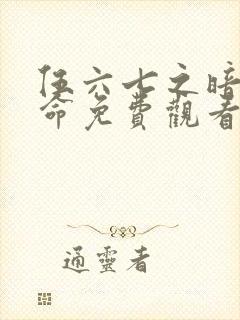 伍六七之暗
命免費觀看
通靈者